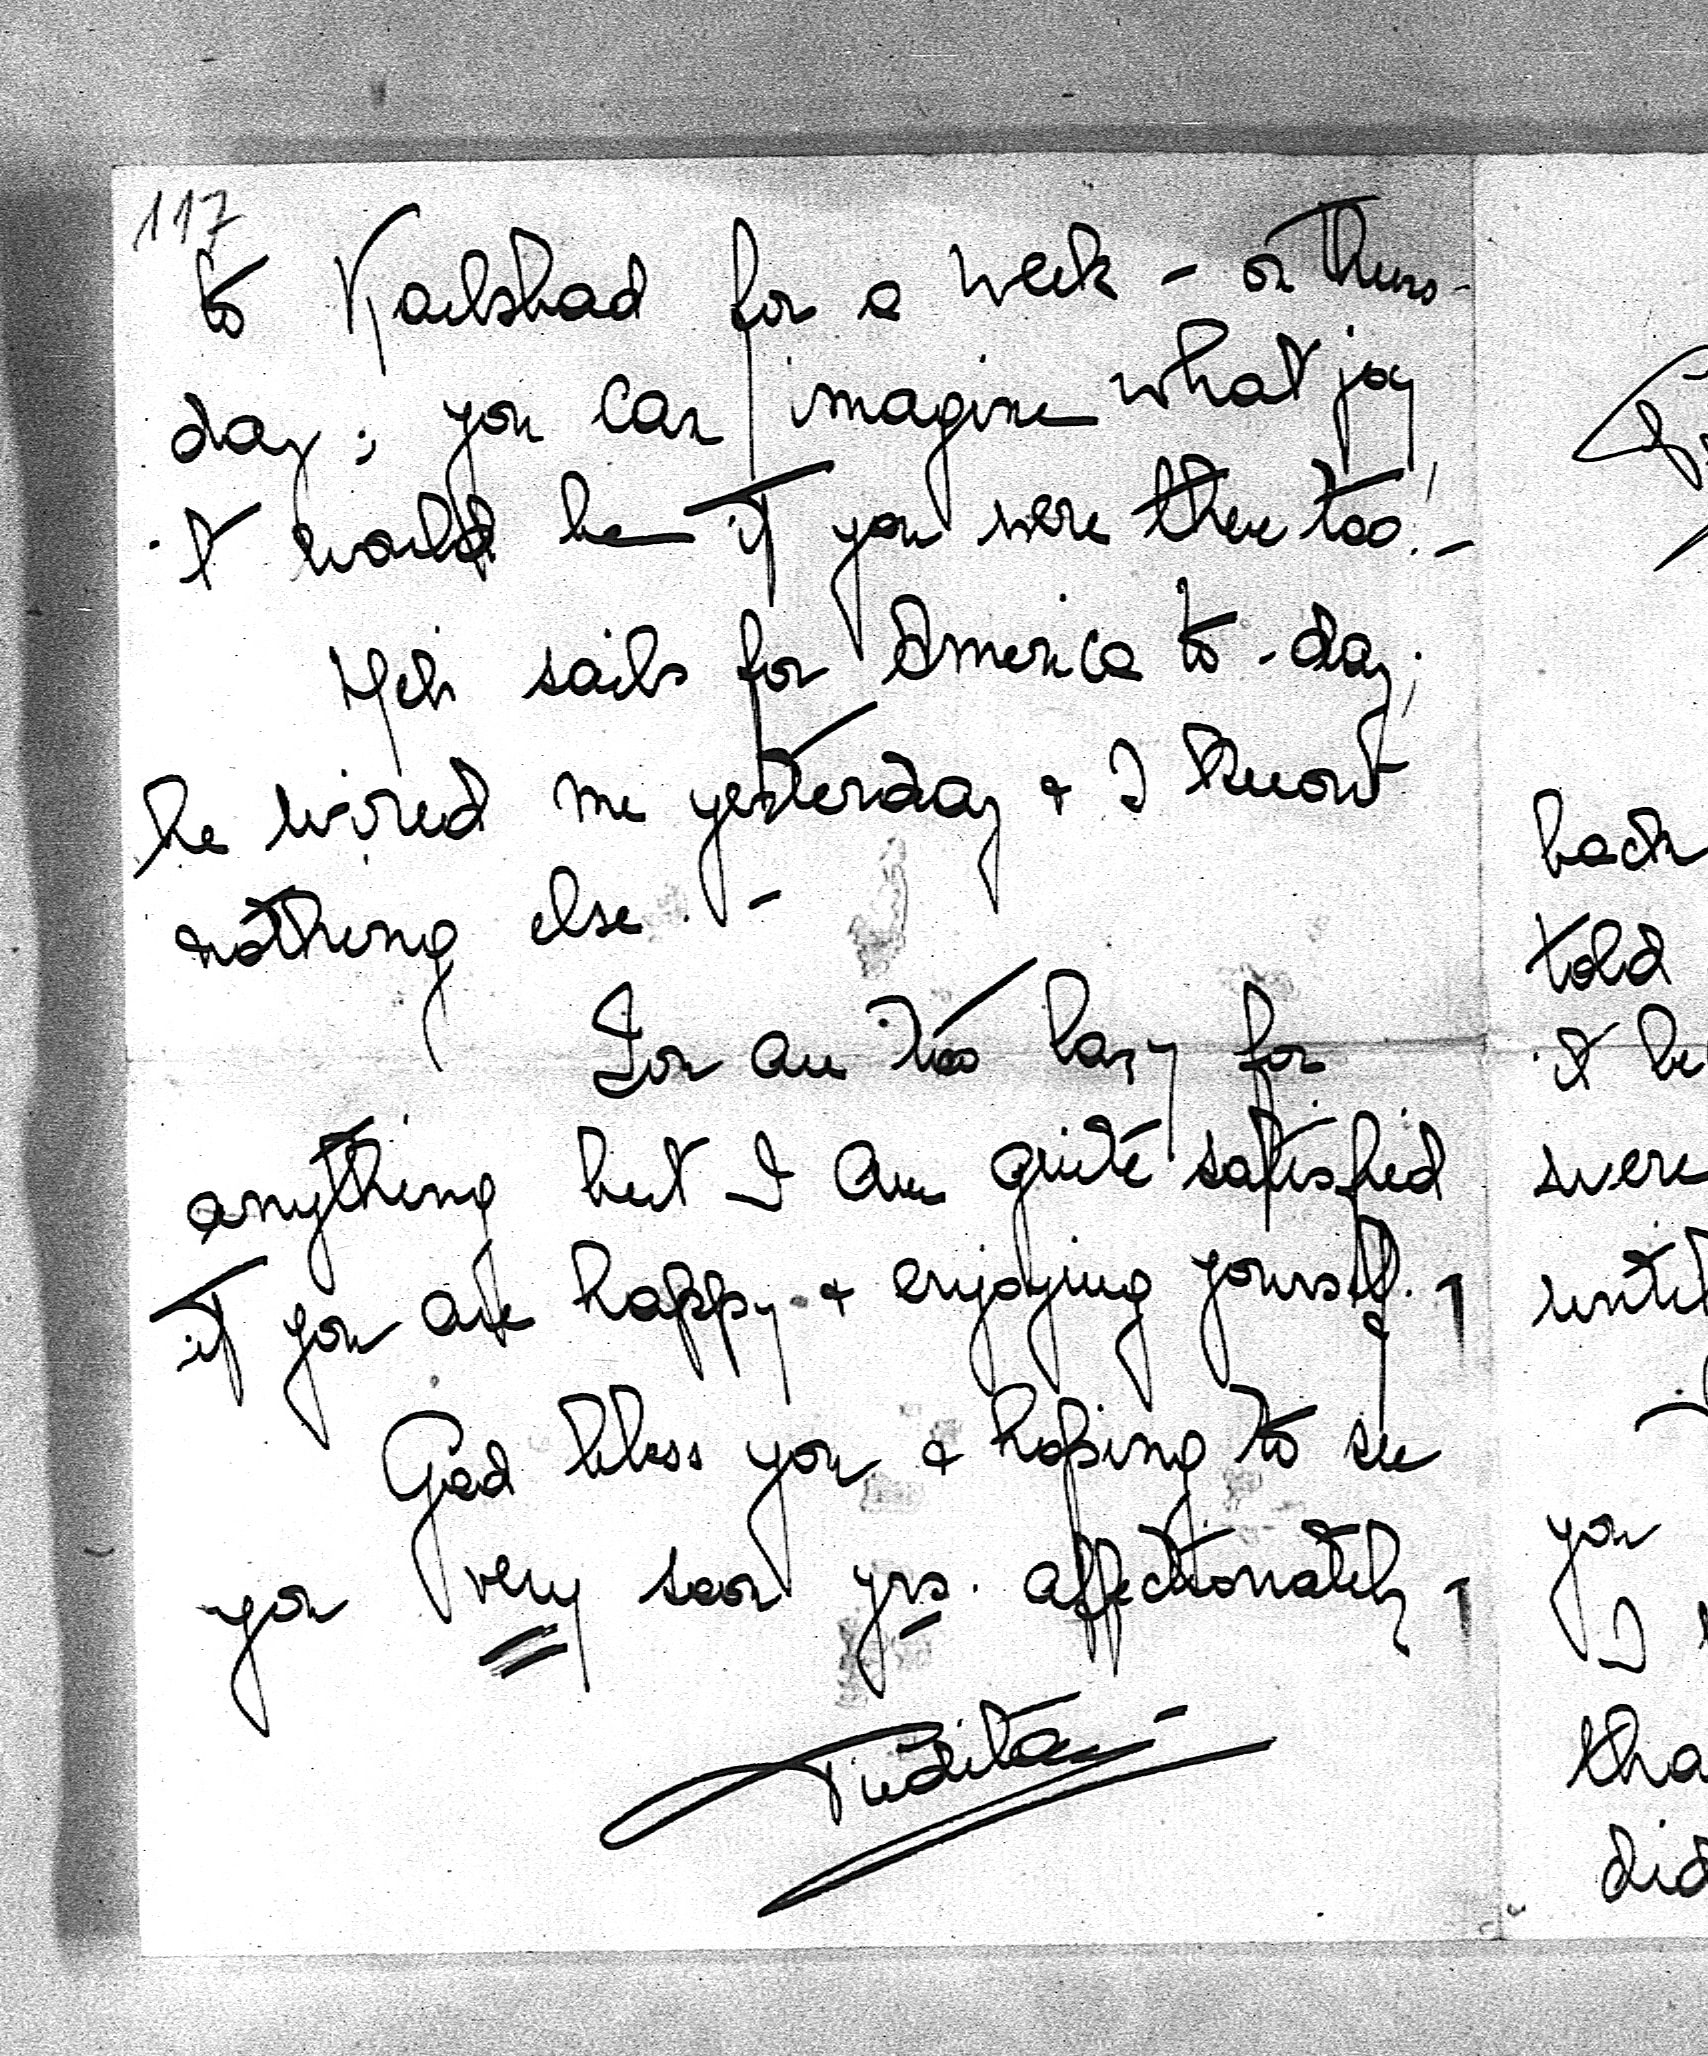 117
to Karlsbad for a week - on Thurs-
day; you can imagine what joy
it would be if you were there too! -
sails for America to-day;
he wired me yesterday & I know
nothing else. -
You are too lazy for
anything but I am quite satisfied
if you are happy & enjoying yourself. -
God bless you & hoping to see
you very soon yrs. affectionately -
back
told
it be
were
until
you
I
tha
did